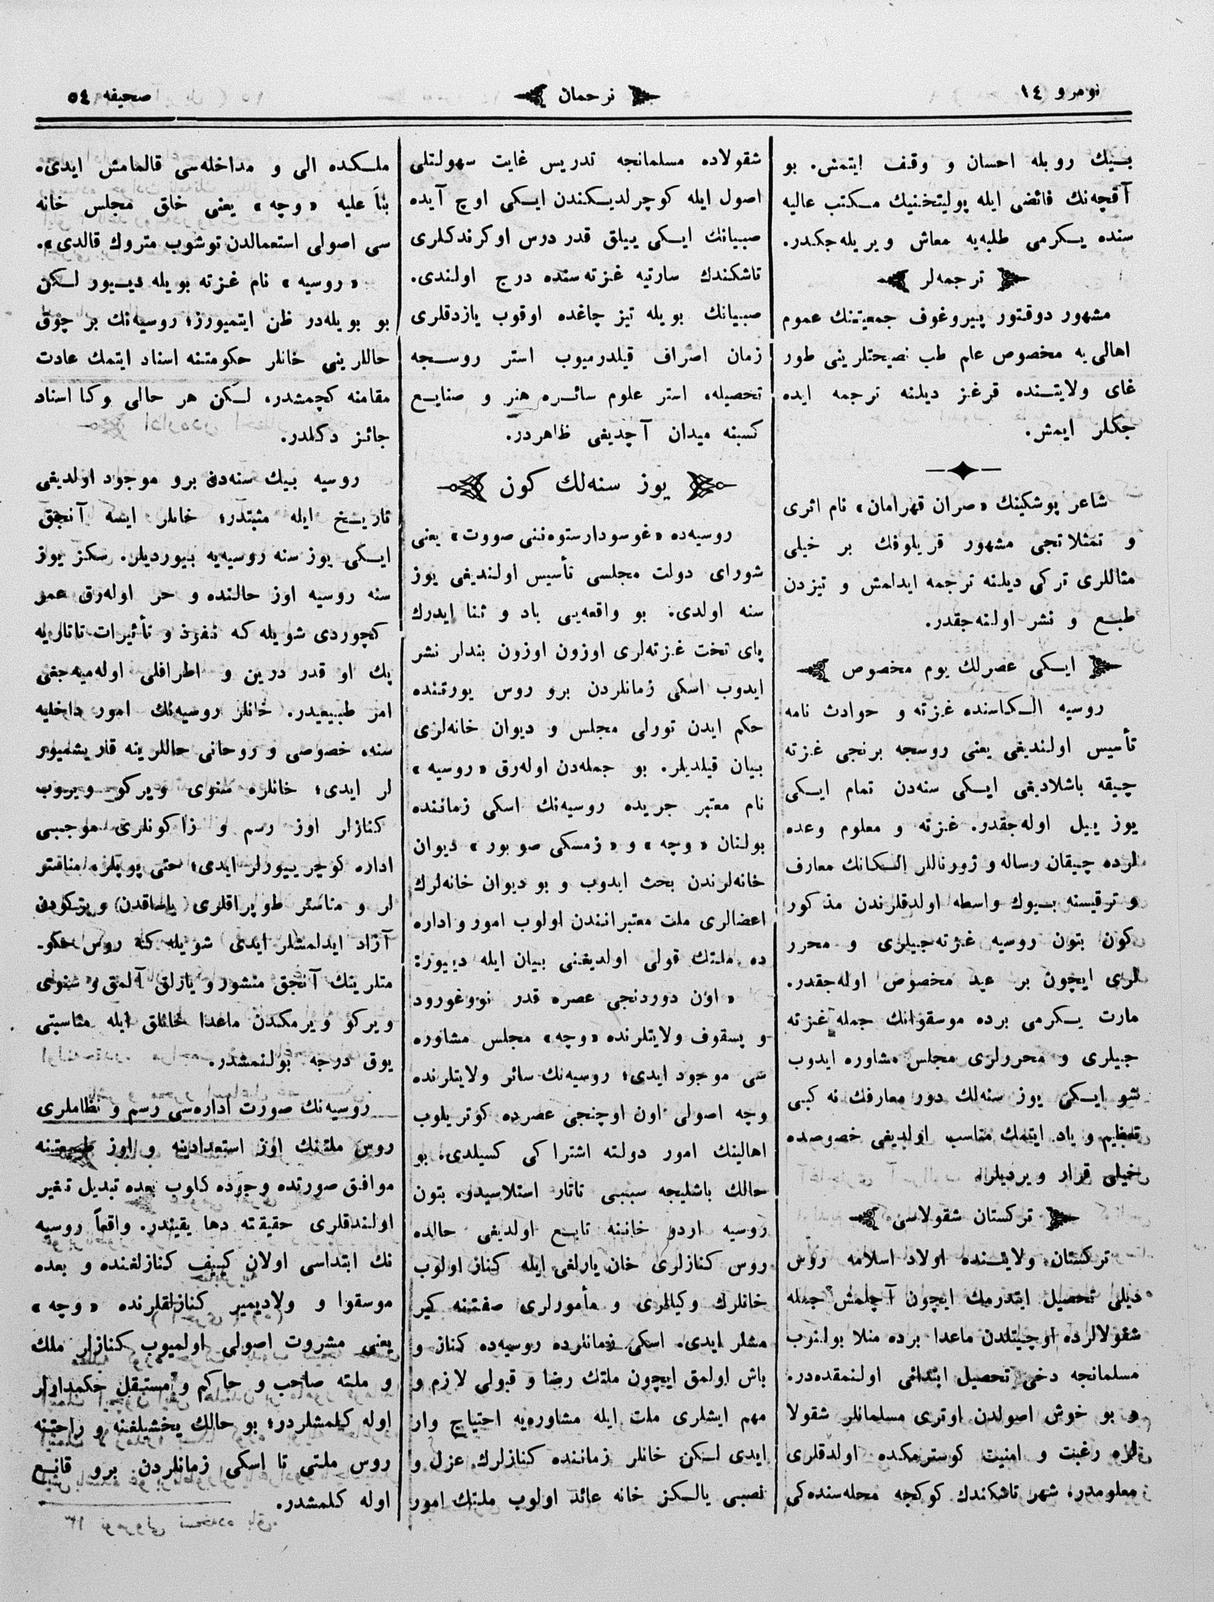 نومرو ١٤
ترحمان
صحیفه ٥٤
بیك روبله احسان و وقف ایتمش. بو
آقچه‌نك فائضی ایله پولیتخنیك مكتب عالیه
سنده یكرمی طلبه‌یه معاش ویریله‌جكدر.
ترجمه‌لر
مشهور دوقتور پیروغوف جمعیتینك عموم
اهالی‌یه مخصوص علم طب نصیحتلرینی طور
غای ولایتنده قرغز دیلنه ترجمه ایده
جكلر ایمش.
شاعر پوشكینك «صران قهرامان» نام اثری
و تمثلاتجی مشهور قریلوفك بر خیلی
مثاللری تركی دیلنه ترجمه ایدلمش و تیزدن
طبع و نشر اولنه‌جقدر.
ایكی عصرلك یوم مخصوص
روسیه الكاسنده غزته و حوادث نامه
تأسیس اولندیغی یعنی روسجه برنجی غزته
چیقه باشلادیغی ایكی سنه‌دن تمام ایكی
یوز ییل اوله‌جقدر. غزته و معلوم وعده
لرده چیقان رساله و ژورناللر الكانك معارف
و ترقیسنه بیوك واسطه اولدقلرندن مذكور
كون بتون روسیه غزته‌جیلری و محرر
لری ایچون بر عید مخصوص اوله‌جقدر.
مارت یكرمی برده موسقوانك جمله غزته
جیلری و محررلری مجلس مشاوره ایدوب
شو ایكی یوز سنه‌لك دور معارفك نه كبی
تعظیم و یاد ایتمك مناسب اولدیغی خصوصده
خیلی قرار ویردیلر.
تركستان شقولاسی
تركستان ولایتنده اولاد اسلامه روس
دیلی تحصیل ایتدرمك ایچون آچلمش جمله
شقولالرده اوچیتلدن ماعدا برده منلا بولنوب
مسلمانجه دخی تحصیل ابتدائی اولنمقده‌در.
و بو خوش اصولدن اوتری مسلمانلر شقولا
لره رغبت و امنیت كوسترمكده اولدقلری
معلومدر. شهر تاشكندك كوكچه محله‌سنده‌كی
شقولاده مسلمانجه تدریس غایت سهولتلی
اصول ایله كوچرلدیكندن ایكی اوچ آیده
صبیانك ایكی ییلق قدر درس اوكرندكلری
تاشكندك سارتیه غزته‌سنده درج اولندی.
صبیانك بویله تیز چاغده اوقوب یازدقلری
زمان اصراف قیلدرمیوب استر روسجه
تحصیله، استر علوم سائره هنر و صنایع
كسبنه میدان آچدیغی ظاهردر.
یوز سنه‌لك كون
روسیه‌ده «غوسودارستوه‌ننی صووت» یعنی
شورای دولت مجلسی تأسیس اولندیغی یوز
سنه اولدی. بو واقعه‌یی یاد و ثنا ایدرك
پای تخت غزته‌لری اوزون اوزون بندلر نشر
ایدوب اسكی زمانلردن برو روس یورتنده
حكم ایدن تورلی مجلس و دیوان خانه‌لری
بیان قیلدیلر. بو جمله‌دن اوله‌رق «روسیه»
نام معتبر جریده روسیه‌نك اسكی زماننده
بولنان «وچه» و «زمسكی صوبور» دیوان
خانه‌لرندن بحث ایدوب و بو دیوان خانه‌لرك
اعضالری ملت معتبرانندن اولوب امور و اداره
ده ملتك قولی اولدیغنی بیان ایله دییور:
«اون دوردنجی عصره قدر نووغورود
و پسقوف ولایتلرنده «وچه» مجلس مشاوره
سی موجود ایدی؛ روسیه‌نك سائر ولایتلرنده
وچه اصولی اون اوچنجی عصرده كوتریلوب
اهالینك امور دولته اشتراكی كسیلدی. بو
حالك باشلیجه سببی تاتار استلاسیدر. بتون
روسیه اردو خاننه تابع اولدیغی حالده
روس كنازلری خان یارلغی ایله كناز اولوب
خانلرك وكیللری و مأمورلری صفتنه كیر
مشلر ایدی. اسكی زمانلرده روسیه‌ده كناز و
باش اولمق ایچون ملتك رضا و قبولی لازم و
مهم ایشلری ملت ایله مشاوره‌یه احتیاج وار
ایدی لكن خانلر زماننده كنازلرك عزل و
نصبی یالكز خانه عائد اولوب ملتك امور
ملكده الی و مداخله‌سی قالمامش ایدی.
بنأ علیه «وچه» یعنی خلق مجلس خانه
سی اصولی استعمالدن توشوب متروك قالدی».
«روسیه» نام غزته بویله دییور لكن
بو بویله‌در ظن ایتمیورز؛ روسیه‌نك بر چوق
حاللرینی خانلر حكومتنه اسناد ایتمك عادت
مقامنه كچمشدر. لكن هر حالی وكا اسناد
جائز دكلدر.
روسیه بیك سنه‌دن برو موجود اولدیغی
تاریخ ایله مثبتدر؛ خانلر ایسه آنجق
ایكی یوز سنه روسیه‌یه بیوردیلر. سكز یوز
سنه روسیه اوز حالنده و حر اوله‌رق عمر
كچوردی شویله كه نفوذ و تأثیرات تاتاریه
پك او قدر درین و اطرافلی اوله‌میه‌جغی
امر طبیعیدر. خانلر روسیه‌نك امور داخلیه
سنه، خصوصی و روحانی حاللرینه قاریشمیور
لر ایدی؛ خانلره سنوی ویركو ویروب
كنازلر اوز رسم و زاكونلری موجبی
اداره كوچرییورلر ایدی؛ حتی پوپلر، مناستر
لر و مناستر طوپراقلری (یاساقدن) ویركودن
آزاد ایدلمشلر ایدی شویله كه روس حكو-
متلرینك آنجق منشور و یازلق آلمق و سنوی
ویركو ویرمكدن ماعدا خانلق ایله مناسبتی
یوق درجه بولنمشدر.
روسیه‌نك صورت اداره‌سی رسم و نظاملری
روس ملتنك اوز استعدادینه و اوز طبیعتنه
موافق صورتده وجوده كلوب بعده تبدیل تغیر
اولندقلری حقیقته دها یقیندر. واقعاً روسیه
نك ابتداسی اولان كیف كنازلغنده و بعده
موسقوا و ولادیمیر كنازلقلرنده «وچه»
یعنی مشروت اصولی اولمیوب كنازلر ملك
و ملته صاحب و حاكم و مستقبل حكمدارلر
اوله كیلمشلردر؛ بو حالك یخشیلغنه و راحتنه
روس ملتی تا اسكی زمانلردن برو قانع
اوله كلمشدر.